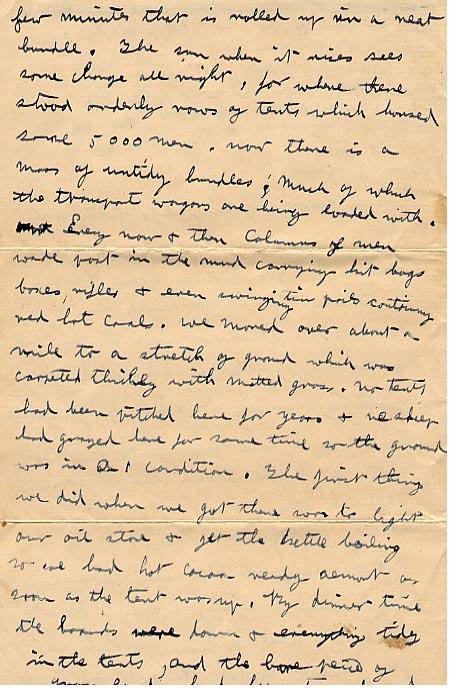 few minutes that is rolled up in a neat
bundle. The sun when it rises sees
some change all right, for where there
stood orderly rows of tents which housed
some 5000 men. now there is a
mass of untidy bundles; Much of which
the transport wagons are being loaded with.
Every now & then Columns of men
wade past in the mud carrying kit bags
boxes, rifles & even swinging tin pails containing
red hot coals. We moved over about a
mile to a stretch of ground which was
carpeted thickly with matted grass. No tents
had been pitched here for years & no sheep
had grazed here for some time so the ground
was in A1 condition. The first thing
we did when we got there was to light
our oil stove & get the kettle boiling
so we had hot cocoa ready almost as
soon as the tent was up. By dinner time
the boards were down & everything tidy
in the tents, and the bare piece of